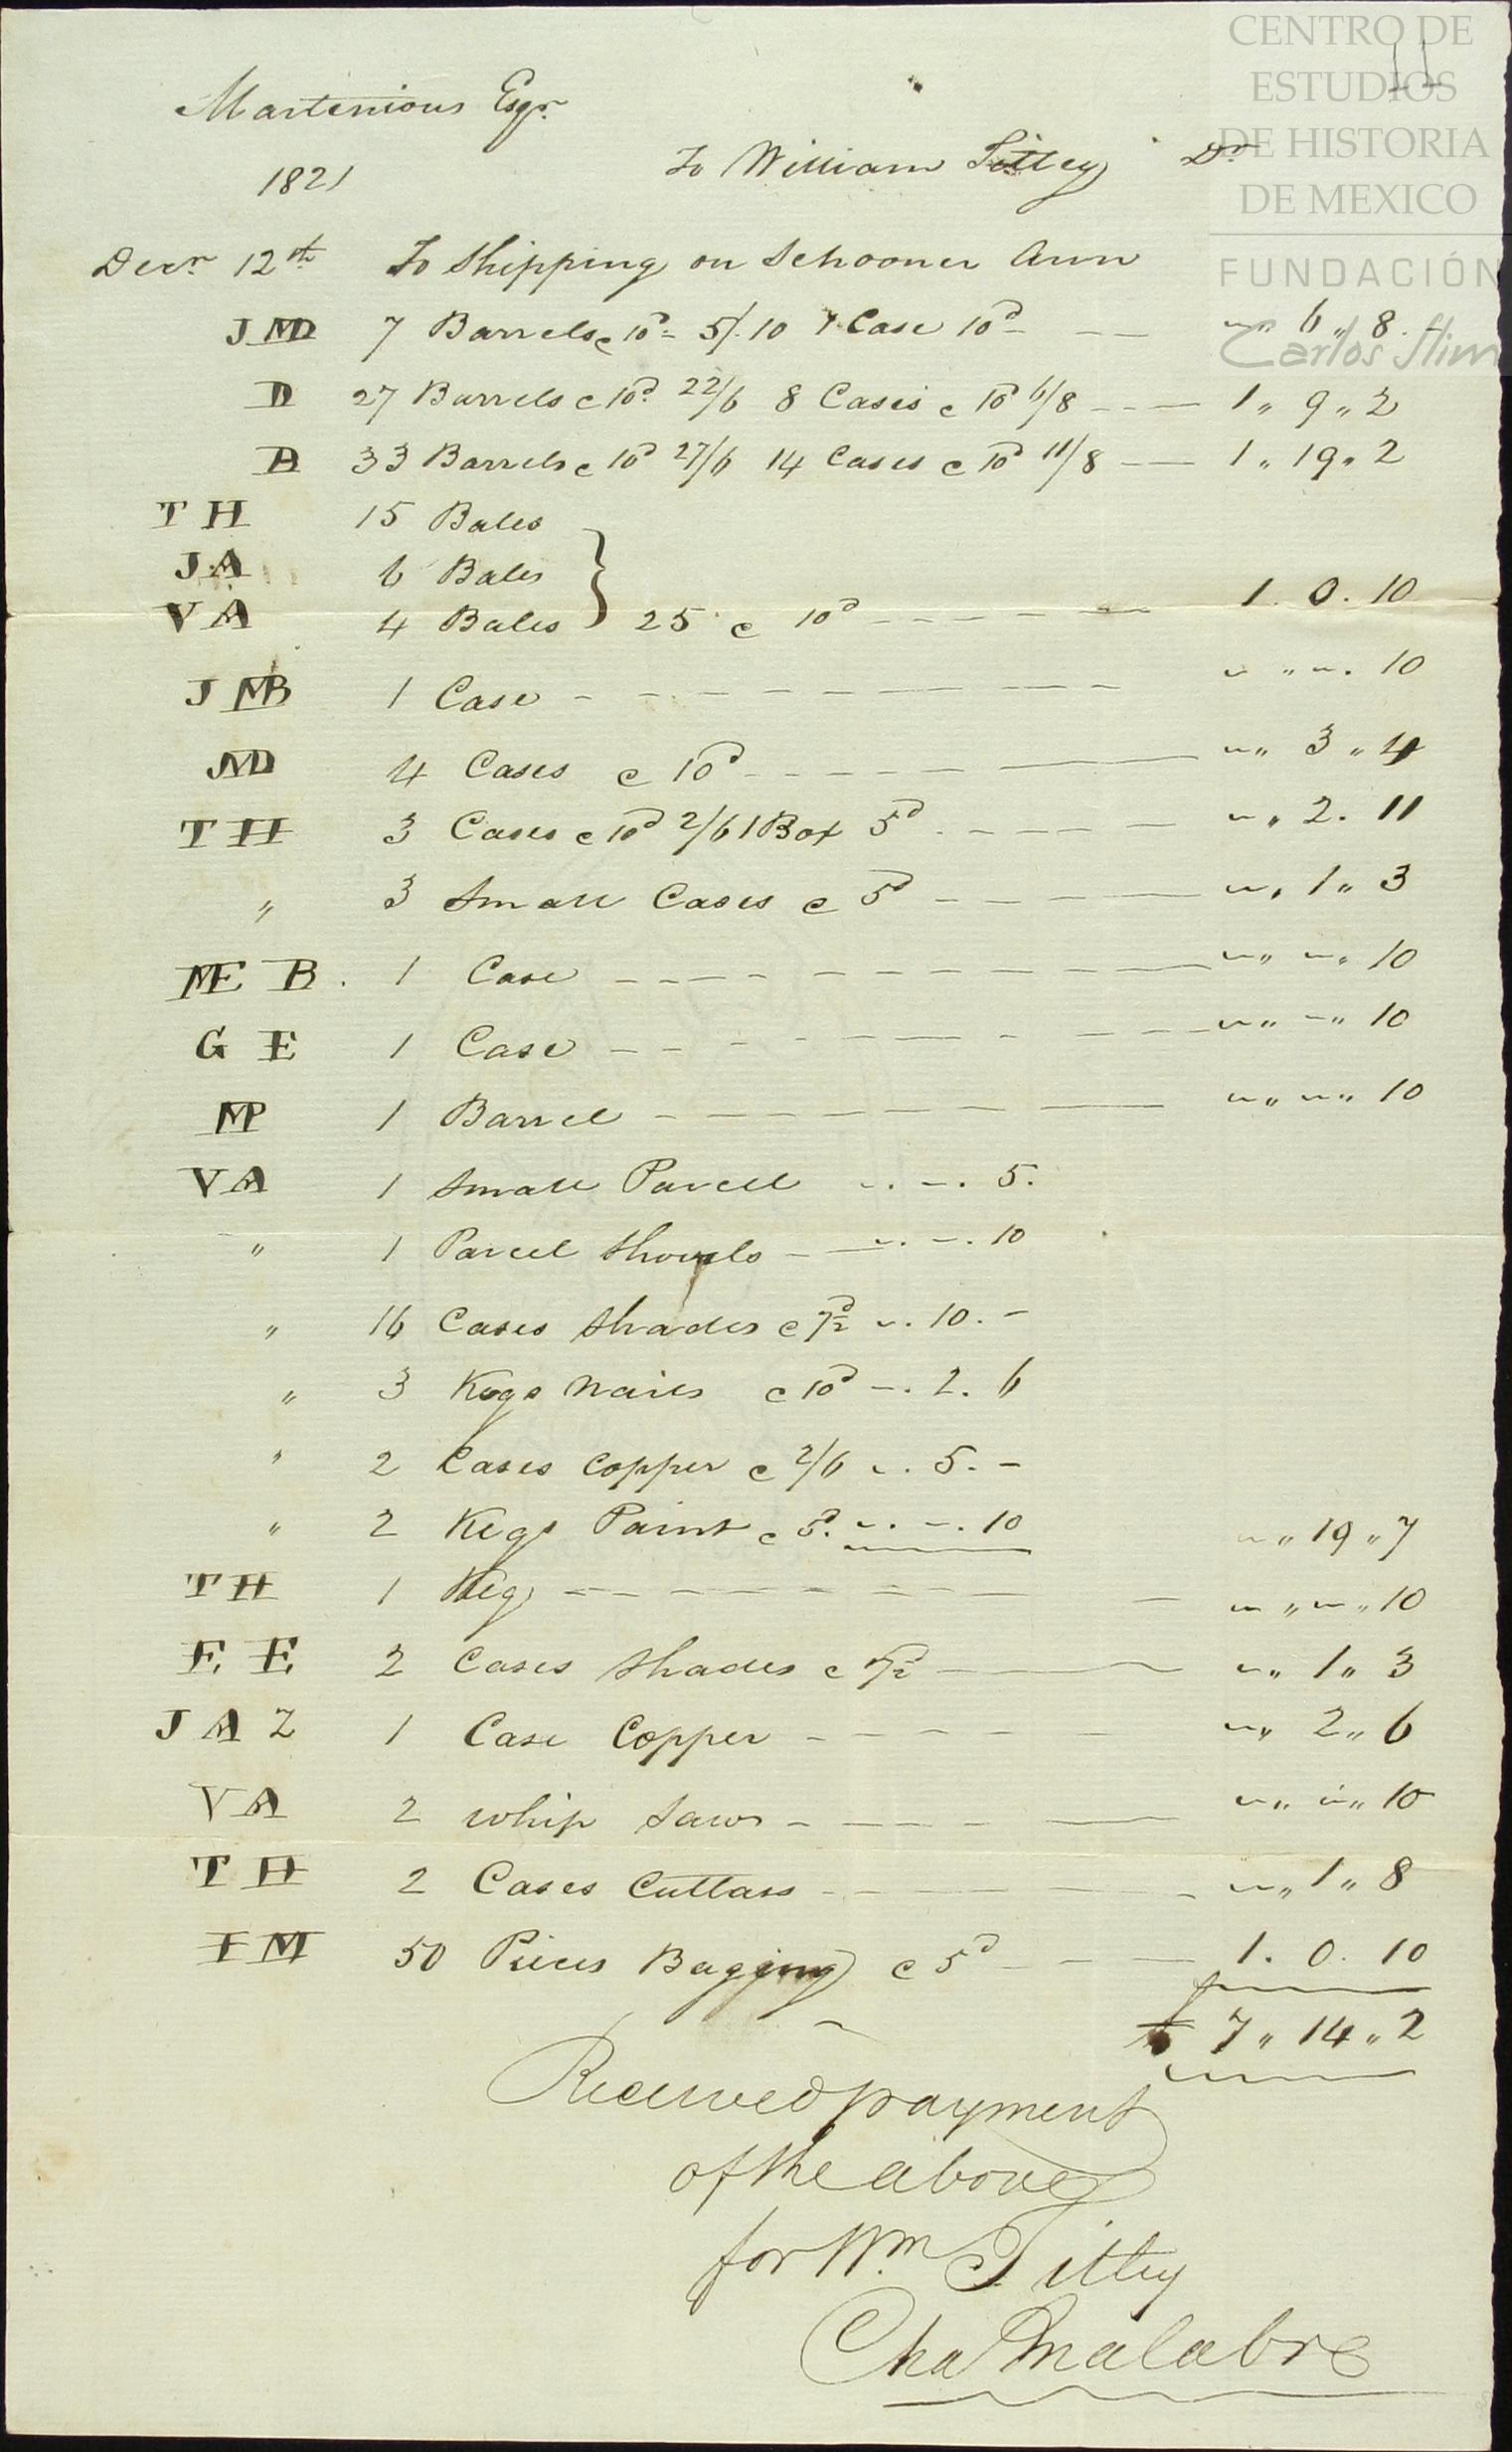 CENTRO DE
ESTUDIOS
DE HISTORIA
DE MEXICO
FUNDACIÓN
Carlos Slim
11
Martenious Esqr.
1821 To William Tittey Dr
Decr 12th To Shipping on Schooner Ann
JMD 7 Barrels @ 10d 5/.10 1 Case 10d - - " 6 " 8.
D 27 Barrels @ 10d 22/6 8 Cases @ 10d 6/8 - - 1 " 9 " 2
D 33 Barrels @ 10d 27/6 14 Cases @ 10d 11/8 - - 1 " 19 " 2
TH 15 Bales
JA 6 Bales
VA 4 Bales } 25 @ 10d - - - - 1. 0. 10
JMB 1 Case - - - - - " " - . 10
MD 4 Cases @ 10d - - - - - " 3 " 4
TH 3 Cases @ 10d 2/6 1 Box 5d - - - - " 2. 11
" 3 Small Cases @ 5d - - - - " 1 " 3
ME B. 1 Case - - - - - " - " 10
G E 1 Case - - - - - " - " 10
MP 1 Barrel - - - - - " - " 10
VA 1 Small Parcell - . - . 5.
" 1 Parcel Shovels - - . - . 10
" 16 Cases Shades @ 7½d - . 10. -
" 3 Kegs Nails @ 10d - . 2. 6
" 2 Cases Copper @ 2/6 - . 5. -
" 2 Kegs Paint @ 5d. - . - . 10 - " 19 " 7
TH 1 Keg - - - - - " - " 10
E. E. 2 Cases Shades @ 7½d - - - " 1 " 3
J A Z 1 Case Copper - - - - - " 2 " 6
VA 2 Whip Saws - - - - - " - " 10
TH 2 Cases Cutlass - - - - - " 1 " 8
IM 50 Pieces Bagging @ 5d - - - 1. 0. 10
£ 7 " 14 " 2
Received payment
of the above
for Wm Tittey
Cha Malabre